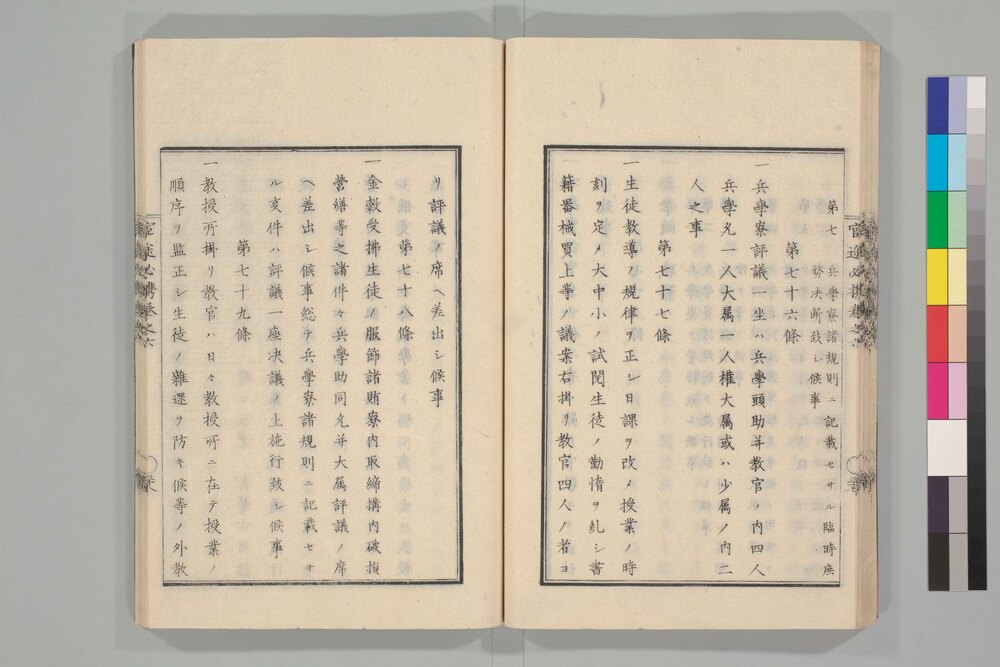 第七 兵學寮諸規則ニ記載セサル臨時庶
務决斷致シ候事
第七十六條
一兵學寮評議一坐ハ兵學頭助并教官ノ内四人
兵學允一人大属一人權大属或ハ少属ノ内二
人之事
第七十七條
一生徒教導ノ規律ヲ正シ日課ヲ改メ授業ノ時
刻ヲ定メ大中小ノ試閲生徒ノ勤惰ヲ糺シ書
籍器械買上等ノ議案右掛リ教官四人ノ者ヨ
リ評議ノ席ヘ差出シ候事
第七十八條
一金穀受拂生徒ノ服飾諸賄寮内取締搆内破損
營繕等之諸件々兵學助同允并大属評議ノ席
ヘ差出シ候事総テ兵學寮諸規則ニ記載セサ
ル亥件ハ評議一座决議ノ上施行致シ候事
第七十九條
一教授所掛リ教官ハ日々教授所ニ在テ授業ノ
順序ヲ監正シ生徒ノ雜遝ヲ防キ候等ノ外教
官途必携巻之六